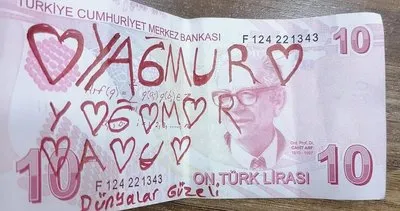 TÜRKİYE CUMHURİYET MERKEZ BANKASI
F 124 221343
10
♡YAĞMUR♡
Y♡Ğ♡M♡R
♡A♡U♡
Ord. Prof. Dr.
CAHİT ARF
1910 - 1997
10
F 124 221343
ON TÜRK LİRASI
10
Dünyalar Güzeli